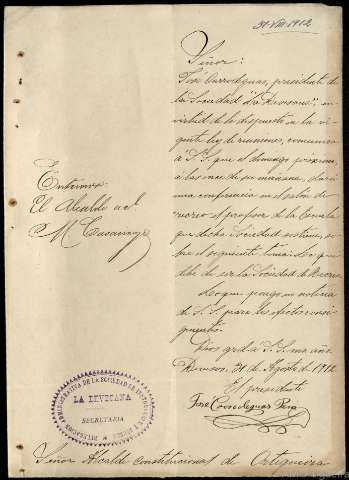 31-VIII-1912
Señor:
José Corredeguas, presidente
de la Sociedad "La Devesana", en
virtud de lo dispuesto en la vi-
gente ley de reuniones, comunica
á S.S. que el domingo próximo
á las once de su mañana, dará
una conferencia en el salón de
recreo el profesor de la Escuela
que dicha Sociedad sostiene, so-
bre el siguiente tema: Lo que
debe de ser la Sociedad de Recreo.
Lo que pongo en noticia
de S.S. para los efectos consi-
guientes.
Dios gde á S.S. ms años
Devesos, 31 de Agosto de 1912
El presidente
José Corredeguas
Enterado
El Alcalde
M
LA DEVESANA
SECRETARIA
Señor Alcalde constitucional de Ortigueira